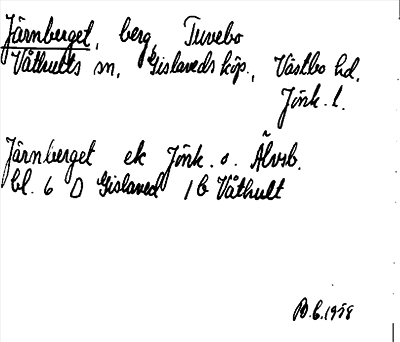 Järnberget, berg, Tuvebo
Våthults sn, Gislaveds köp., Västbo hd.
Jönk. l.
Järnberget ek Jönk. o. Älvsb.
bl. 6 D Gislaved 1 b Våthult
1958